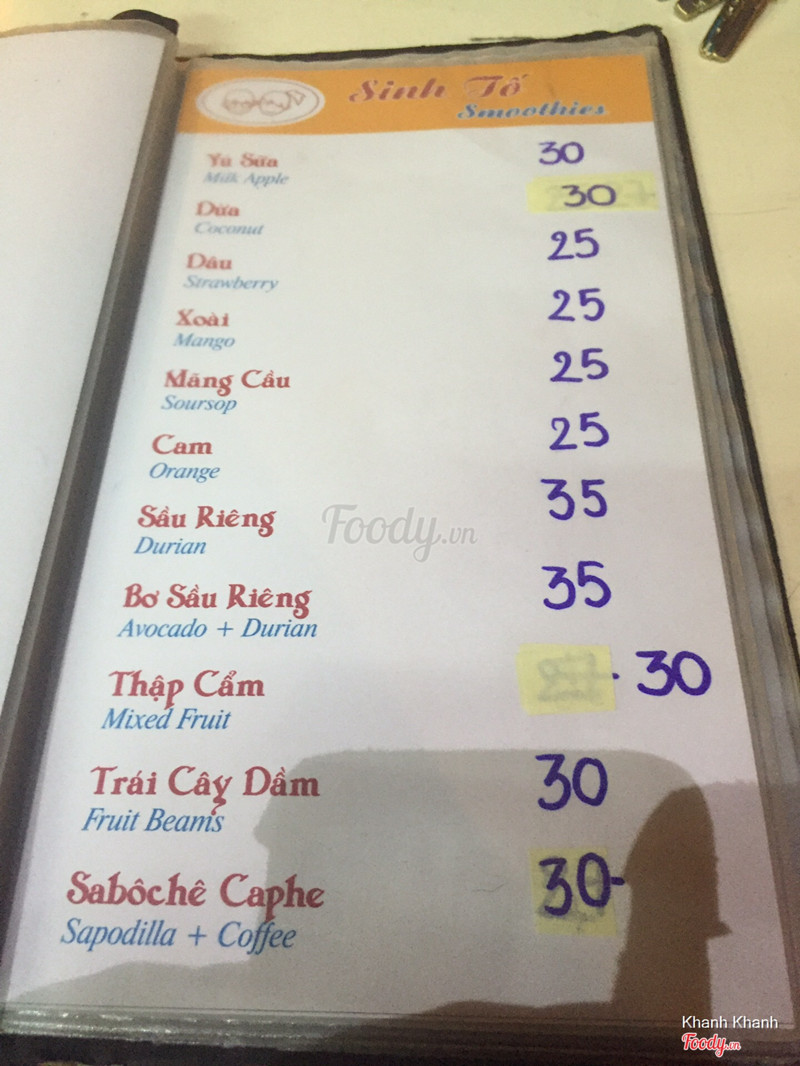 Sinh Tố
Smoothies
Vú Sữa 30
Milk Apple
Dừa 30
Coconut
Dâu 25
Strawberry
Xoài 25
Mango
Mãng Cầu 25
Soursop
Cam 25
Orange
Sầu Riêng 35
Durian
Bơ Sầu Riêng 35
Avocado + Durian
Thập Cẩm 30
Mixed Fruit
Trái Cây Dầm 30
Fruit Beams
Sabôchê Caphe 30
Sapodilla + Coffee
Foody.vn
Khanh Khanh
Foody.vn